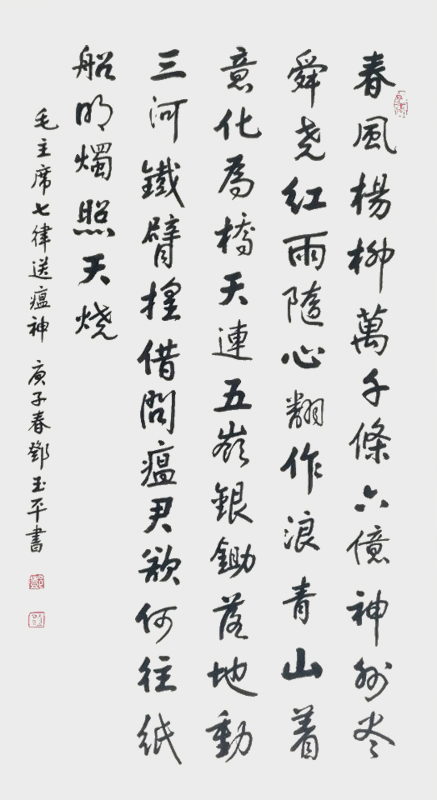 春風楊柳萬千條六億神州盡
舜堯紅雨隨心翻作浪青山着
意化為橋天連五嶺銀鋤落地動
三河鐵臂搖借問瘟君欲何往紙
船明燭照天燒
毛主席七律送瘟神 庚子春鄧玉平書